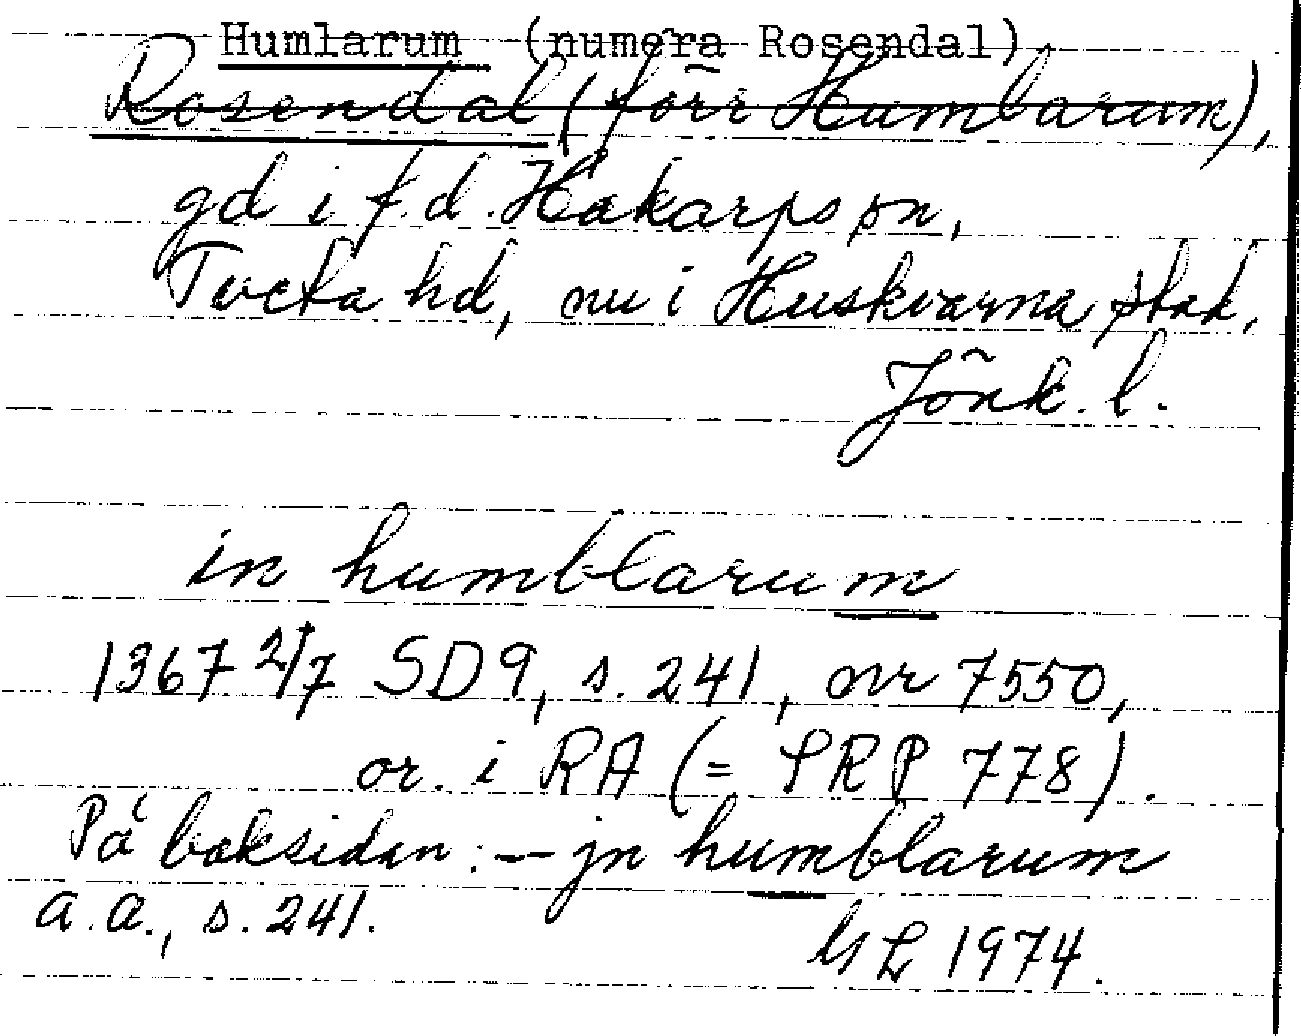 Humlarum (numera Rosendal)
Rosendal (förr Humlarum),
gd i f.d. Hakarps sn,
Tveta hd, nu i Huskvarna stad,
Jönk. l.
in humblarum
1367 2/7 SD9, s. 241, nr 7550,
or. i RA (= SRP 778).
På baksidan: – jn humblarum
a.a., s. 241.
GL 1974.